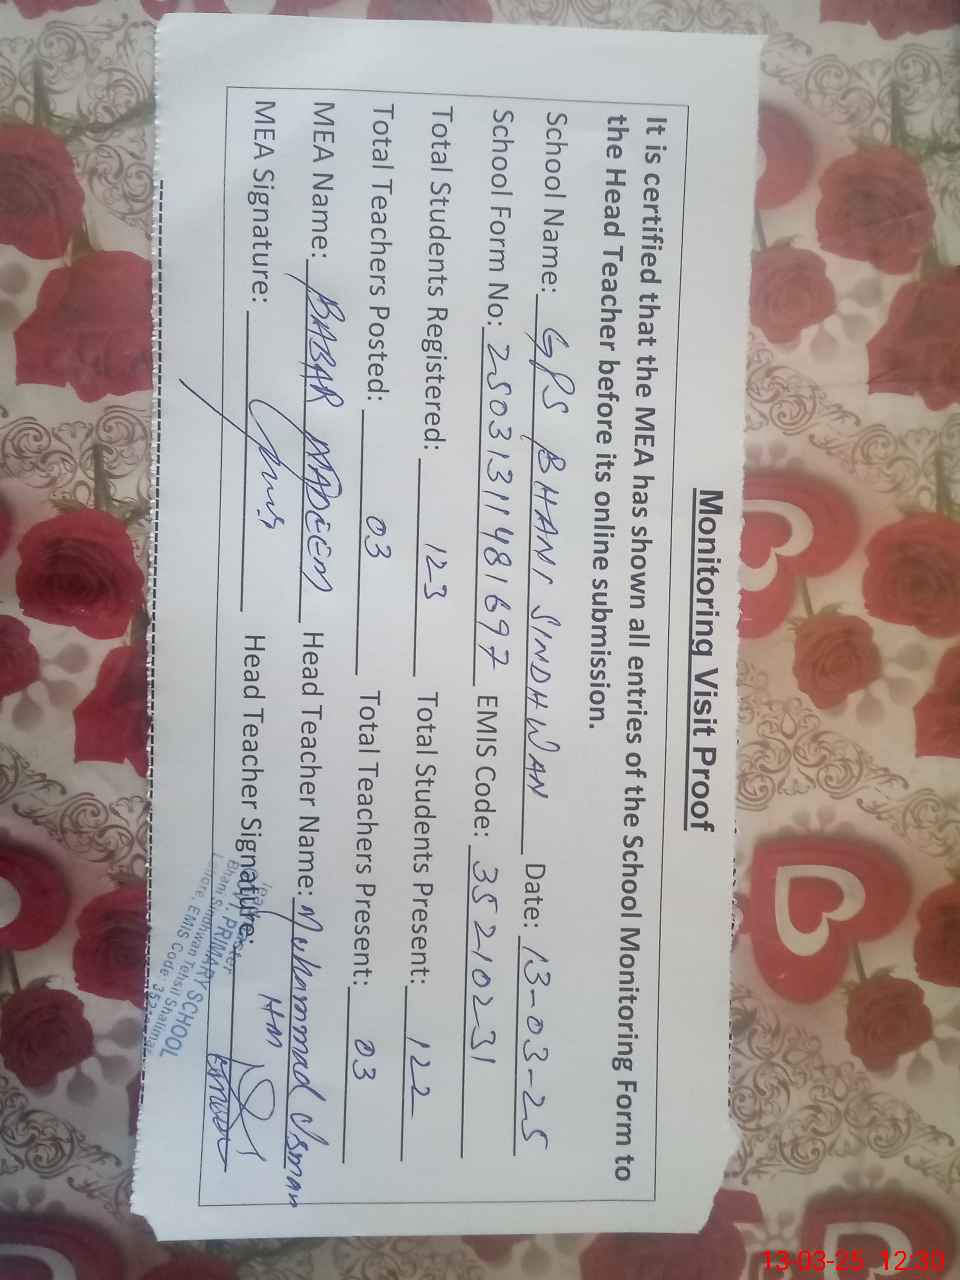 Monitoring Visit Proof
It is certified that the MEA has shown all entries of the School Monitoring Form to
the Head Teacher before its online submission.
School Name: GPS BHANI SINDHWAN Date: 13-03-25
School Form No: 25031311481697 EMIS Code: 35210231
Total Students Registered: 123 Total Students Present: 122
Total Teachers Posted: 03 Total Teachers Present: 03
MEA Name: BABAR NADEEM Head Teacher Name: Muhammad Usman
MEA Signature: Head Teacher Signature: HM
PRIMARY SCHOOL
Bhani Sindhwan Tehsil Shalimar
Lahore, EMIS Code: 352
13-03-25 12:30